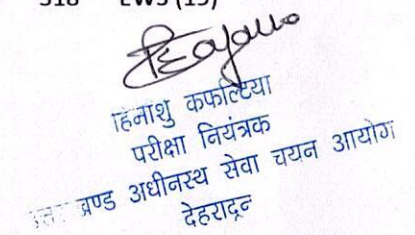 EWS (15)
हिमांशु कफल्टिया
परीक्षा नियंत्रक
खण्ड अधीनस्थ सेवा चयन आयोग
देहरादून